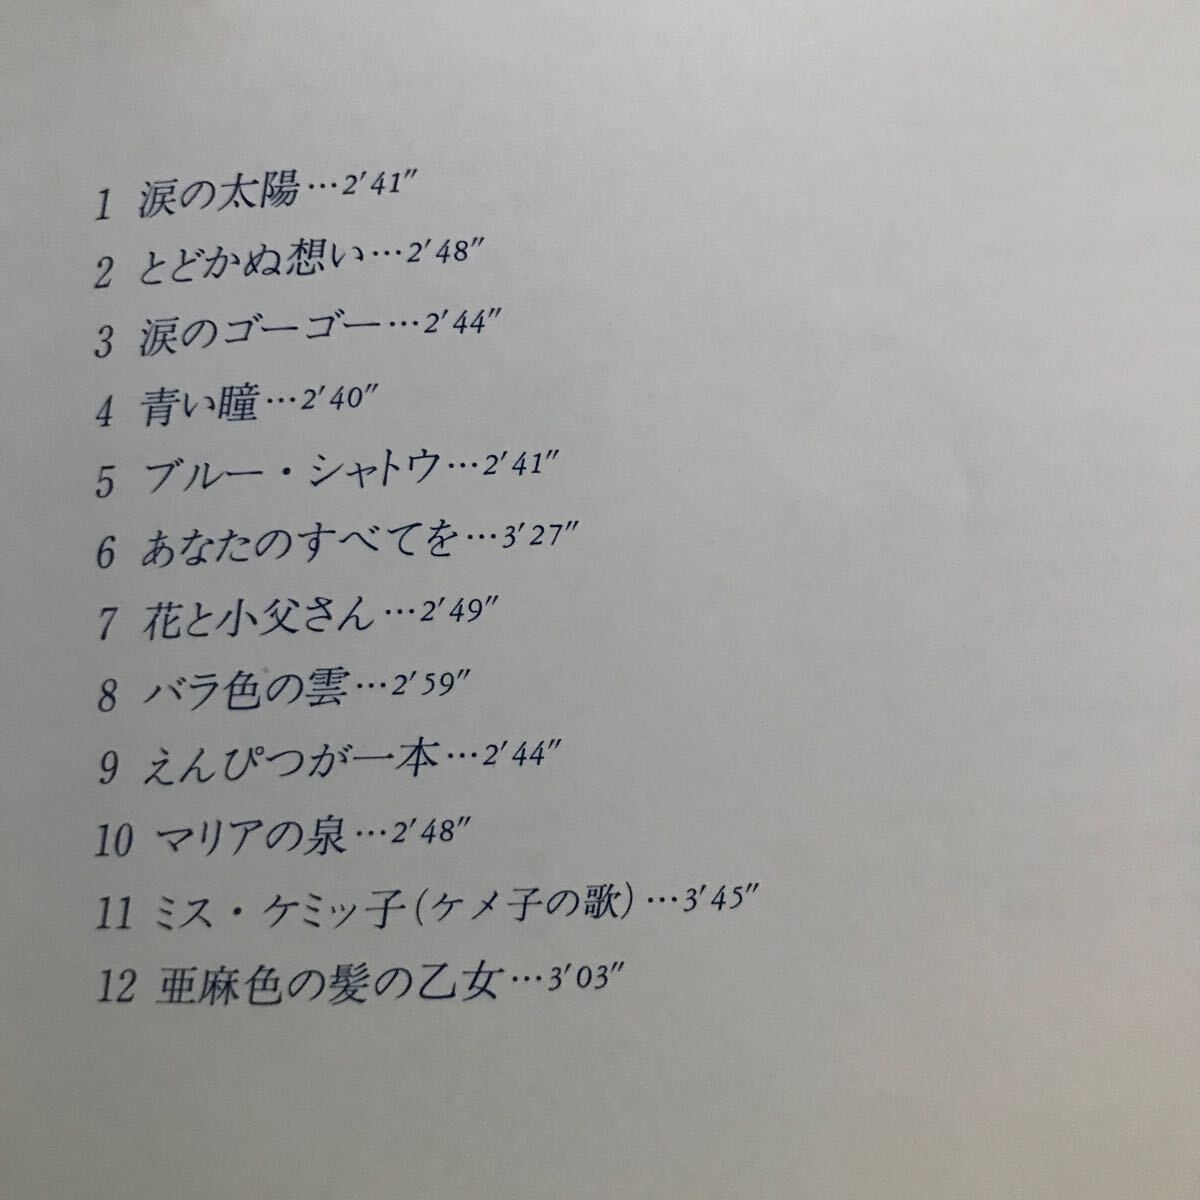 1 涙の太陽…2′41″
2 とどかぬ想い…2′48″
3 涙のゴーゴー…2′44″
4 青い瞳…2′40″
5 ブルー・シャトウ…2′41″
6 あなたのすべてを…3′27″
7 花と小父さん…2′49″
8 バラ色の雲…2′59″
9 えんぴつが一本…2′44″
10 マリアの泉…2′48″
11 ミス・ケミッ子(ケメ子の歌)…3′45″
12 亜麻色の髪の乙女…3′03″